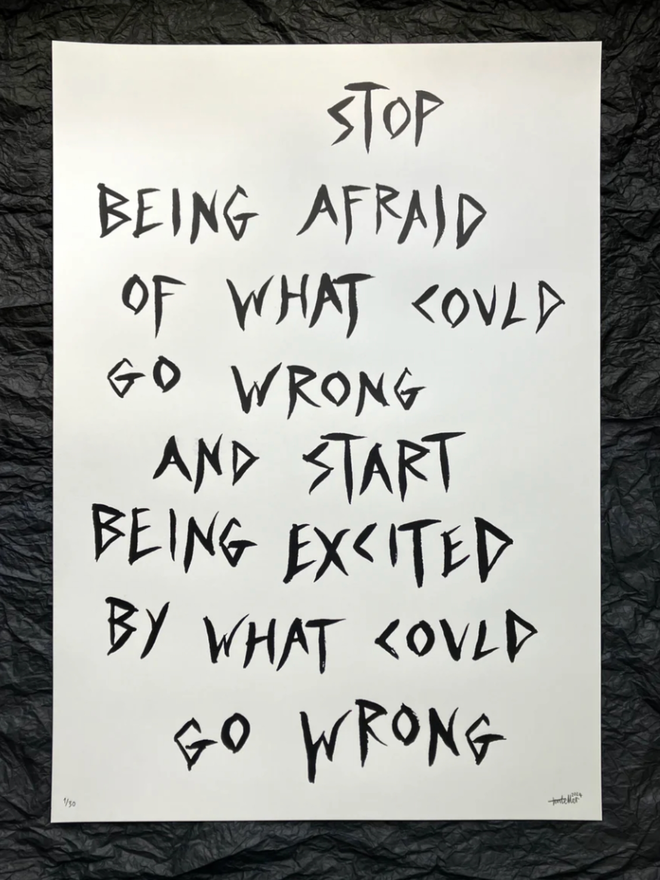 STOP
BEING AFRAID
OF WHAT COULD
GO WRONG
AND START
BEING EXCITED
BY WHAT COULD
GO WRONG
1/50
2024